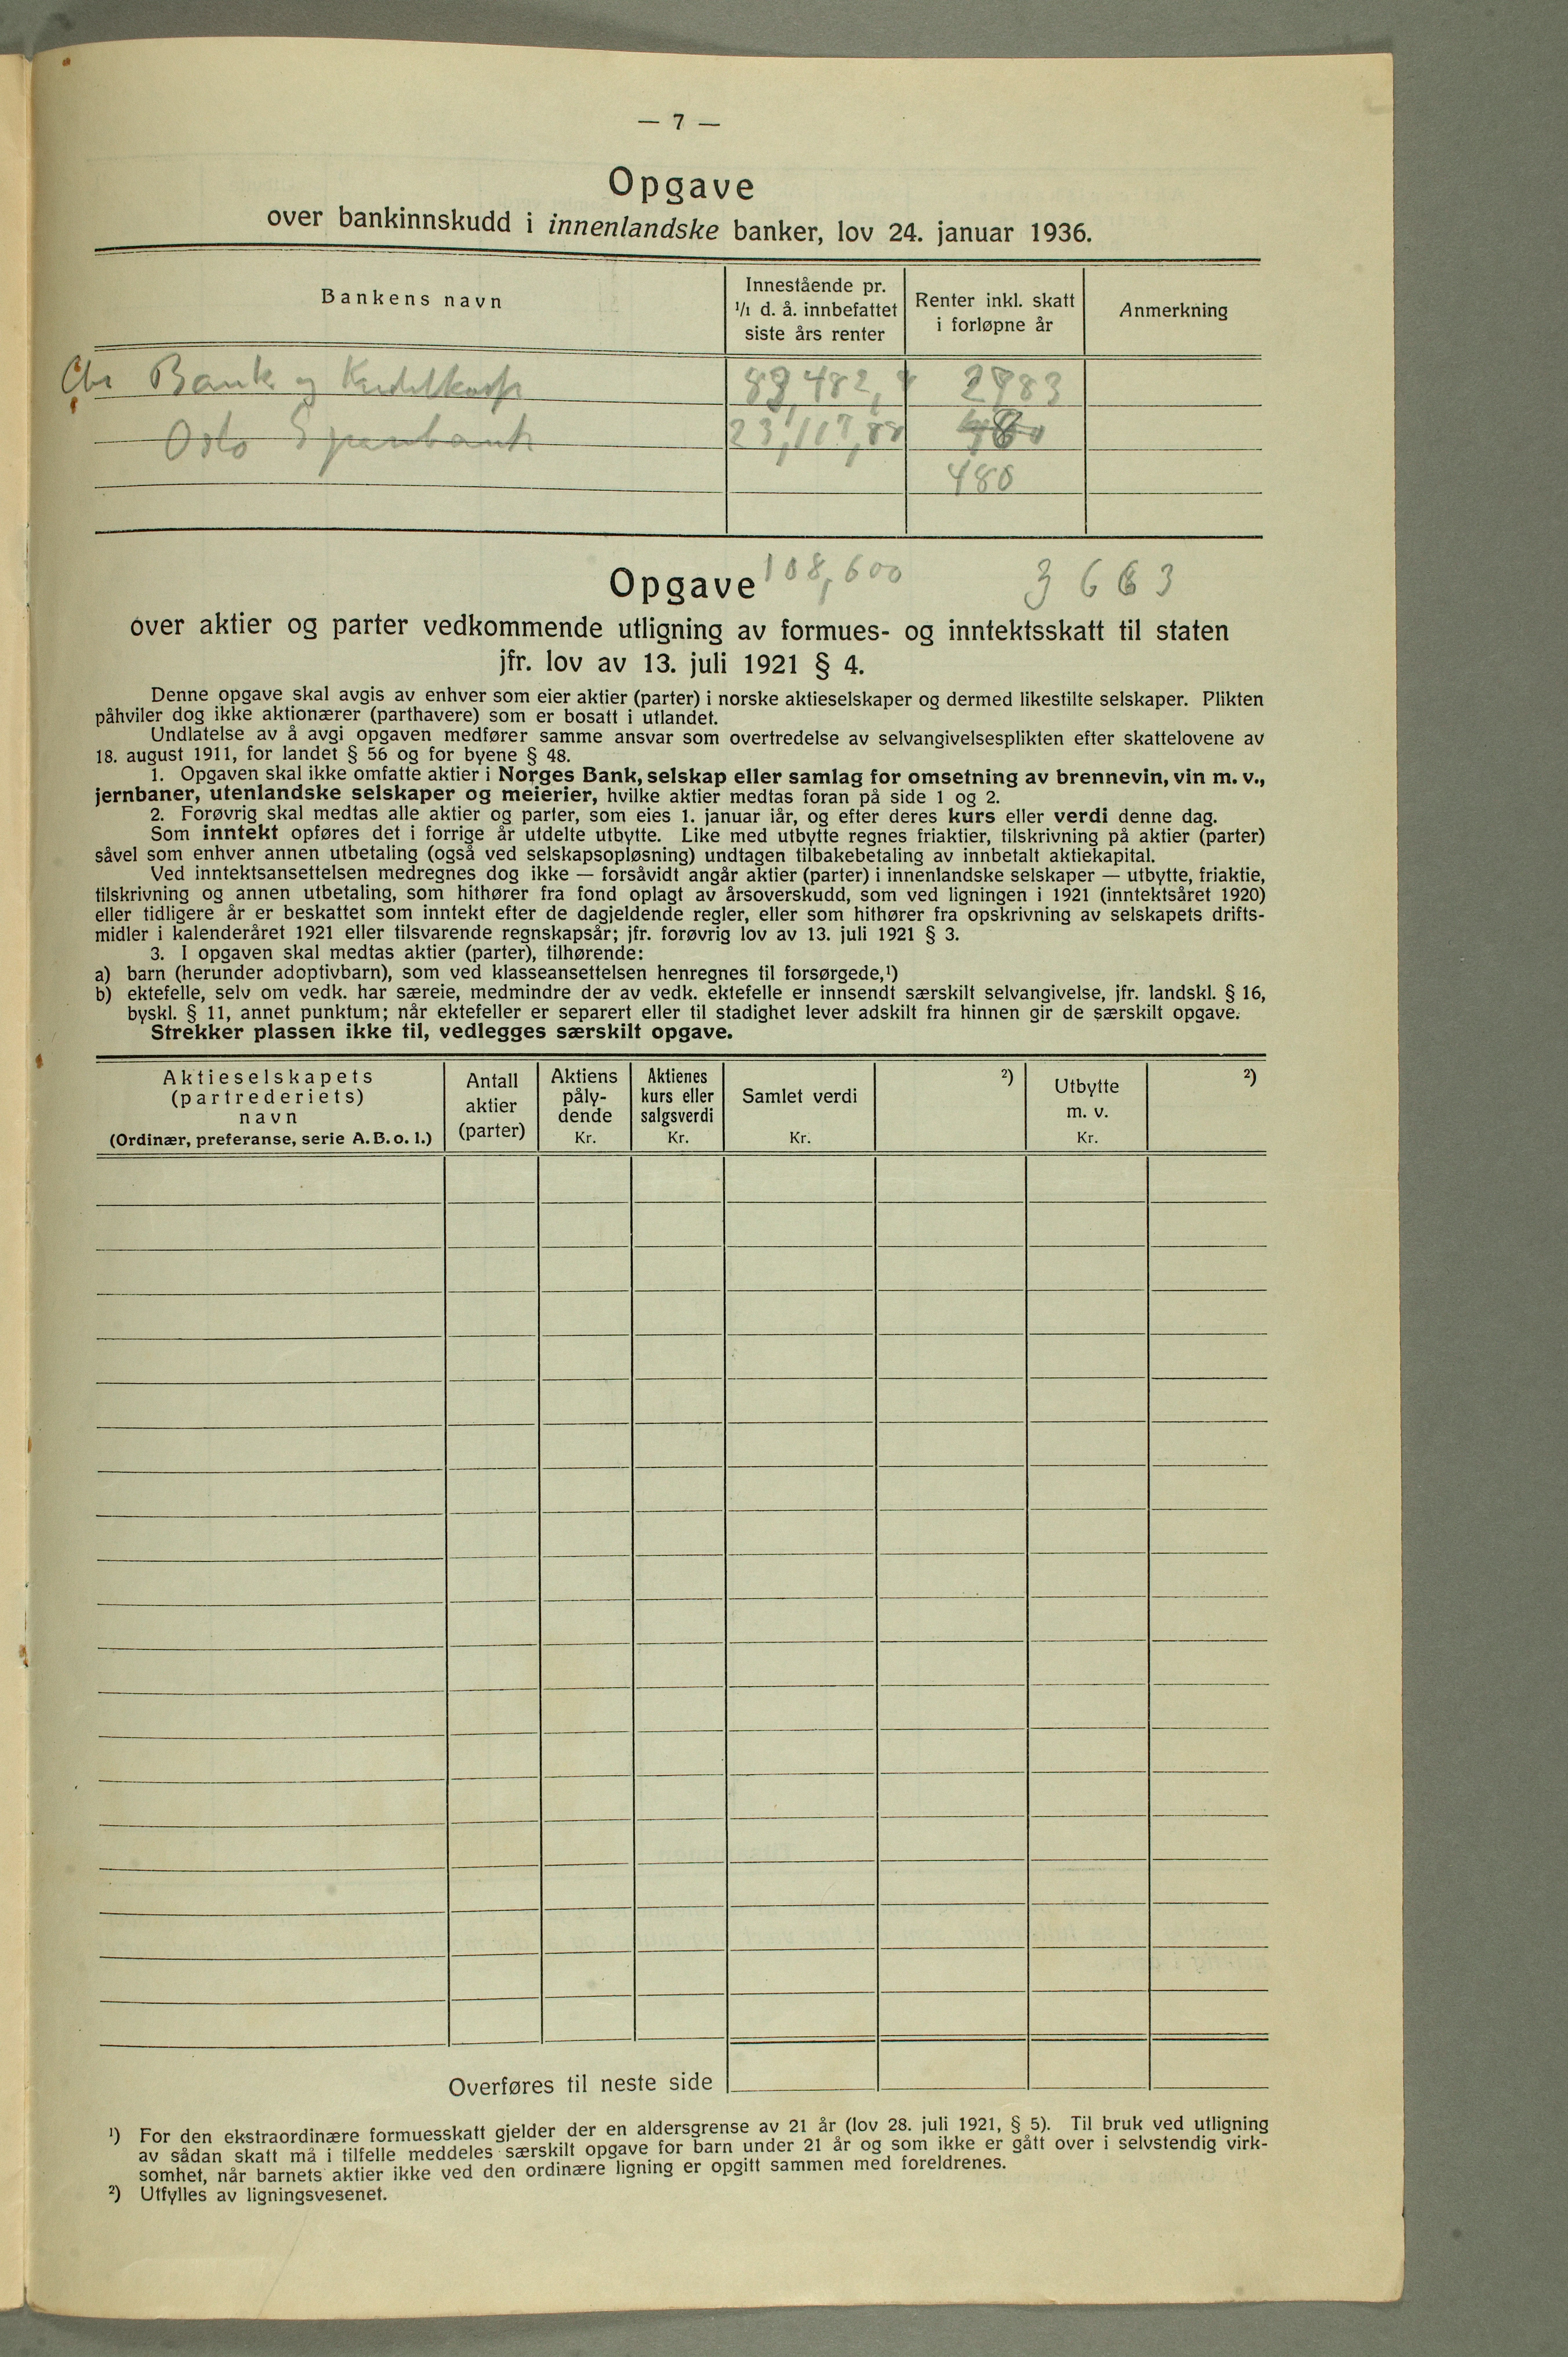 — 7 —
Opgave
over bankinnskudd i innenlandske banker, lov 24. januar 1936.
Bankens navn
Innestående pr.
¹/₁ d. å. innbefattet
siste års renter
Renter inkl. skatt
i forløpne år
Anmerkning
Chr Bank og Kreditkasse
482,
83
Oslo Sparebank
23,117,
480
108,600
Opgave
3663
over aktier og parter vedkommende utligning av formues- og inntektsskatt til staten
jfr. lov av 13. juli 1921 § 4.
Denne opgave skal avgis av enhver som eier aktier (parter) i norske aktieselskaper og dermed likestilte selskaper. Plikten
påhviler dog ikke aktionærer (parthavere) som er bosatt i utlandet.
Undlatelse av å avgi opgaven medfører samme ansvar som overtredelse av selvangivelsesplikten efter skattelovene av
18. august 1911, for landet § 56 og for byene § 48.
1. Opgaven skal ikke omfatte aktier i Norges Bank, selskap eller samlag for omsetning av brennevin, vin m. v.,
jernbaner, utenlandske selskaper og meierier, hvilke aktier medtas foran på side 1 og 2.
2. Forøvrig skal medtas alle aktier og parter, som eies 1. januar iår, og efter deres kurs eller verdi denne dag.
Som inntekt opføres det i forrige år utdelte utbytte. Like med utbytte regnes friaktier, tilskrivning på aktier (parter)
såvel som enhver annen utbetaling (også ved selskapsopløsning) undtagen tilbakebetaling av innbetalt aktiekapital.
Ved inntektsansettelsen medregnes dog ikke — forsåvidt angår aktier (parter) i innenlandske selskaper — utbytte, friaktie,
tilskrivning og annen utbetaling, som hithører fra fond oplagt av årsoverskudd, som ved ligningen i 1921 (inntektsåret 1920)
eller tidligere år er beskattet som inntekt efter de dagjeldende regler, eller som hithører fra opskrivning av selskapets drifts-
midler i kalenderåret 1921 eller tilsvarende regnskapsår; jfr. forøvrig lov av 13. juli 1921 § 3.
3. I opgaven skal medtas aktier (parter), tilhørende:
a) barn (herunder adoptivbarn), som ved klasseansettelsen henregnes til forsørgede,¹)
b) ektefelle, selv om vedk. har særeie, medmindre der av vedk. ektefelle er innsendt særskilt selvangivelse, jfr. landskl. § 16,
byskl. § 11, annet punktum; når ektefeller er separert eller til stadighet lever adskilt fra hinnen gir de særskilt opgave.
Strekker plassen ikke til, vedlegges særskilt opgave.
Aktieselskapets
(partrederiets)
navn
(Ordinær, preferanse, serie A. B. o. l.)
Antall
aktier
(parter)
Aktiens
påly-
dende
Kr.
Aktienes
kurs eller
salgsverdi
Kr.
Samlet verdi
Kr.
²)
Utbytte
m. v.
Kr.
²)
Overføres til neste side
¹) For den ekstraordinære formuesskatt gjelder der en aldersgrense av 21 år (lov 28. juli 1921, § 5). Til bruk ved utligning
av sådan skatt må i tilfelle meddeles særskilt opgave for barn under 21 år og som ikke er gått over i selvstendig virk-
somhet, når barnets aktier ikke ved den ordinære ligning er opgitt sammen med foreldrenes.
²) Utfylles av ligningsvesenet.